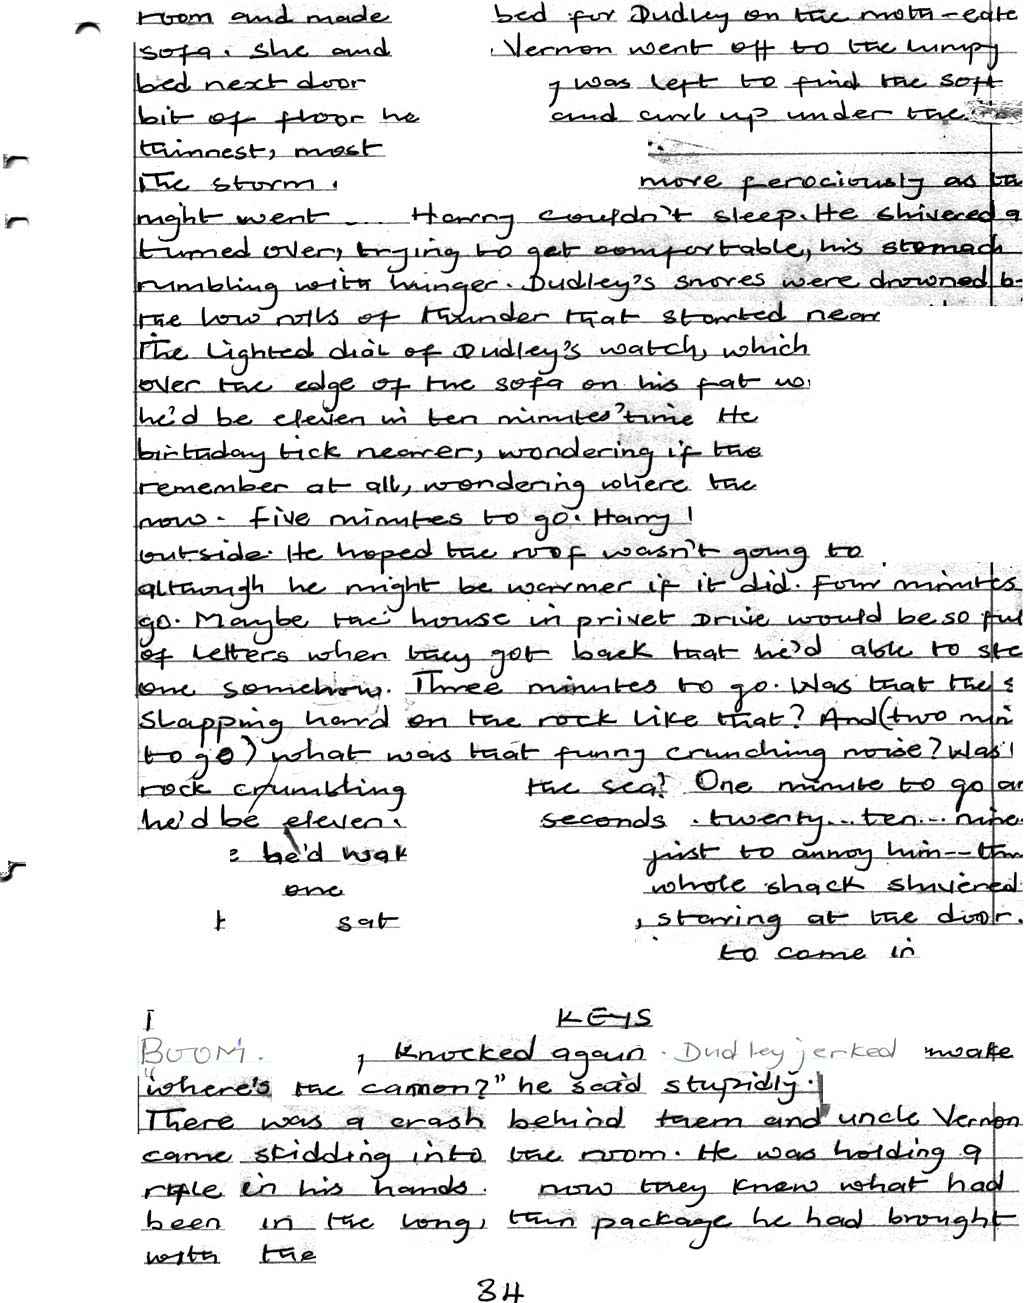 room and made bed for Dudley on the moth-eate
sofa. She and Vernon went off to the lumpy
bed next door y was left to find the soft
bit of floor he and curl up under the
thinnest, most
The storm. more ferociously as th
night went Harry couldn't sleep. He shivered a
turned over, trying to get comfortable, his stomach
rumbling with hunger. Dudley's snores were drowned b
the low rolls of thunder that started near
The Lighted dial of Dudley's watch, which
over the edge of the sofa on his fat
he'd be eleven in ten minutes' time He
birthday tick nearer, wondering if the
remember at all, wondering where the
now. Five minutes to go. Harry
outside. He hoped the roof wasn't going to
although he might be warmer if it did. Four minutes
go. Maybe the house in privet Drive would be so ful
of Letters when they got back that he'd able to ste
one somehow. Three minutes to go. Was that the s
slapping hard on the rock like that? And (two min
to go) what was that funny crunching noise? Was
rock crumbling the sea? One minute to go an
he'd be eleven. seconds . twenty... ten... nine
he'd wak just to annoy him--thr
one whole shack shivered
sat , staring at the door.
to come in
KEYS
BOOM. , knocked again. Dudley jerked awake
"where's the canon?" he said stupidly.
There was a crash behind them and uncle Vernon
came skidding into the room. He was holding a
rifle in his hands. now they knew what had
been in the long, thin package he had brought
with the
34